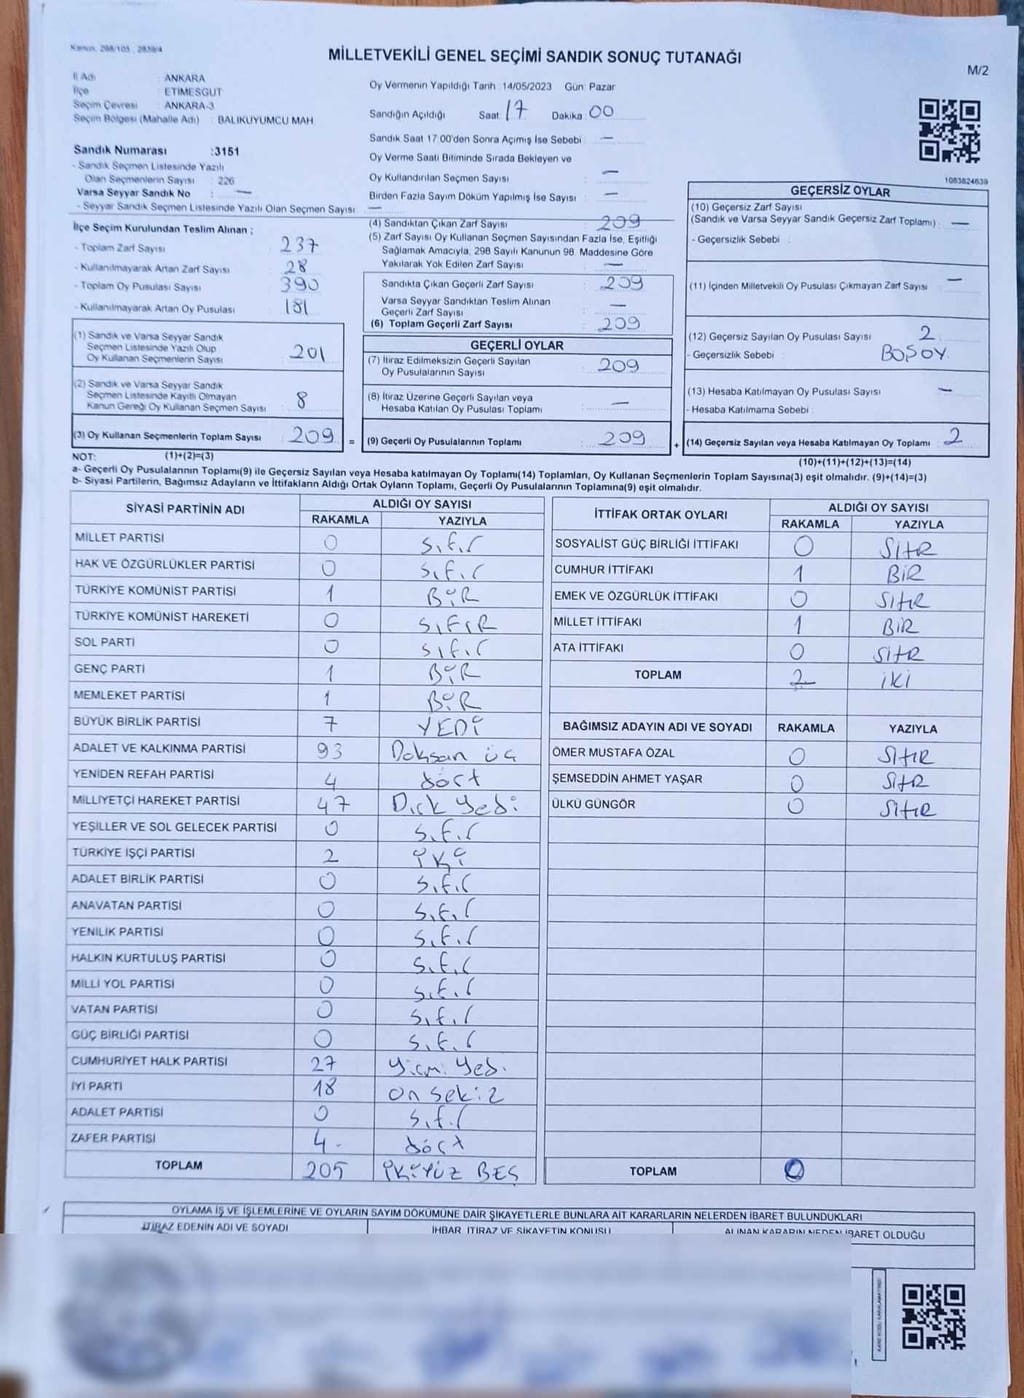 Kanun: 298/105 ; 2839/4
MİLLETVEKİLİ GENEL SEÇİMİ SANDIK SONUÇ TUTANAĞI
M/2
İl Adı : ANKARA
İlçe : ETİMESGUT
Seçim Çevresi : ANKARA-3
Seçim Bölgesi (Mahalle Adı) : BALIKUYUMCU MAH
Sandık Numarası :3151
- Sandık Seçmen Listesinde Yazılı
Olan Seçmenlerin Sayısı : 226
Varsa Seyyar Sandık No : —
- Seyyar Sandık Seçmen Listesinde Yazılı Olan Seçmen Sayısı : —
İlçe Seçim Kurulundan Teslim Alınan ;
- Toplam Zarf Sayısı 237
- Kullanılmayarak Artan Zarf Sayısı 28
- Toplam Oy Pusulası Sayısı 390
- Kullanılmayarak Artan Oy Pusulası 181
(1) Sandık ve Varsa Seyyar Sandık
Seçmen Listesinde Yazılı Olup
Oy Kullanan Seçmenlerin Sayısı 201
(2) Sandık ve Varsa Seyyar Sandık
Seçmen Listesinde Kayıtlı Olmayan
Kanun Gereği Oy Kullanan Seçmen Sayısı 8
(3) Oy Kullanan Seçmenlerin Toplam Sayısı 209 =
Oy Vermenin Yapıldığı Tarih : 14/05/2023 Gün: Pazar
Sandığın Açıldığı Saat: 17 Dakika: 00
Sandık Saat 17:00'den Sonra Açımış İse Sebebi : —
Oy Verme Saati Bitiminde Sırada Bekleyen ve
Oy Kullandırılan Seçmen Sayısı : —
Birden Fazla Sayım Döküm Yapılmış İse Sayısı : —
(4) Sandıktan Çıkan Zarf Sayısı 209
(5) Zarf Sayısı Oy Kullanan Seçmen Sayısından Fazla İse, Eşitliği
Sağlamak Amacıyla, 298 Sayılı Kanunun 98. Maddesine Göre
Yakılarak Yok Edilen Zarf Sayısı —
Sandıkta Çıkan Geçerli Zarf Sayısı : 209
Varsa Seyyar Sandıktan Teslim Alınan
Geçerli Zarf Sayısı : —
(6) Toplam Geçerli Zarf Sayısı : 209
GEÇERLİ OYLAR
(7) İtiraz Edilmeksizin Geçerli Sayılan
Oy Pusulalarının Sayısı : 209
(8) İtiraz Üzerine Geçerli Sayılan veya
Hesaba Katılan Oy Pusulası Toplamı : —
(9) Geçerli Oy Pusulalarının Toplamı : 209 +
1083824639
GEÇERSİZ OYLAR
(10) Geçersiz Zarf Sayısı
(Sandık ve Varsa Seyyar Sandık Geçersiz Zarf Toplamı) : —
- Geçersizlik Sebebi :
(11) İçinden Milletvekili Oy Pusulası Çıkmayan Zarf Sayısı : —
(12) Geçersiz Sayılan Oy Pusulası Sayısı : 2
- Geçersizlik Sebebi : BOŞOY.
(13) Hesaba Katılmayan Oy Pusulası Sayısı : —
- Hesaba Katılmama Sebebi :
(14) Geçersiz Sayılan veya Hesaba Katılmayan Oy Toplamı : 2
NOT: (1)+(2)=(3) (10)+(11)+(12)+(13)=(14)
a- Geçerli Oy Pusulalarının Toplamı(9) ile Geçersiz Sayılan veya Hesaba katılmayan Oy Toplamı(14) Toplamları, Oy Kullanan Seçmenlerin Toplam Sayısına(3) eşit olmalıdır. (9)+(14)=(3)
b- Siyasi Partilerin, Bağımsız Adayların ve İttifakların Aldığı Ortak Oyların Toplamı, Geçerli Oy Pusulalarının Toplamına(9) eşit olmalıdır.
SİYASİ PARTİNİN ADI ALDIĞI OY SAYISI
RAKAMLA YAZIYLA
MİLLET PARTİSİ 0 Sıfır
HAK VE ÖZGÜRLÜKLER PARTİSİ 0 Sıfır
TÜRKİYE KOMÜNİST PARTİSİ 1 BİR
TÜRKİYE KOMÜNİST HAREKETİ 0 SIFIR
SOL PARTİ 0 Sıfır
GENÇ PARTİ 1 BİR
MEMLEKET PARTİSİ 1 BİR
BÜYÜK BİRLİK PARTİSİ 7 YEDİ
ADALET VE KALKINMA PARTİSİ 93 Doksan üç
YENİDEN REFAH PARTİSİ 4 dört
MİLLİYETÇİ HAREKET PARTİSİ 47 Dırk Yedi
YEŞİLLER VE SOL GELECEK PARTİSİ 0 Sıfır
TÜRKİYE İŞÇİ PARTİSİ 2 İKİ
ADALET BİRLİK PARTİSİ 0 Sıfır
ANAVATAN PARTİSİ 0 Sıfır
YENİLİK PARTİSİ 0 Sıfır
HALKIN KURTULUŞ PARTİSİ 0 Sıfır
MİLLİ YOL PARTİSİ 0 Sıfır
VATAN PARTİSİ 0 Sıfır
GÜÇ BİRLİĞİ PARTİSİ 0 Sıfır
CUMHURİYET HALK PARTİSİ 27 Yirmi Yedi
İYİ PARTİ 18 on sekiz
ADALET PARTİSİ 0 Sıfır
ZAFER PARTİSİ 4 dört
TOPLAM 205 İKİYÜZ BEŞ
İTTİFAK ORTAK OYLARI ALDIĞI OY SAYISI
RAKAMLA YAZIYLA
SOSYALİST GÜÇ BİRLİĞİ İTTİFAKI 0 SIFIR
CUMHUR İTTİFAKI 1 BİR
EMEK VE ÖZGÜRLÜK İTTİFAKI 0 SIFIR
MİLLET İTTİFAKI 1 BİR
ATA İTTİFAKI 0 SIFIR
TOPLAM 2 İKİ
BAĞIMSIZ ADAYIN ADI VE SOYADI RAKAMLA YAZIYLA
ÖMER MUSTAFA ÖZAL 0 SIFIR
ŞEMSEDDİN AHMET YAŞAR 0 SIFIR
ÜLKÜ GÜNGÖR 0 SIFIR
TOPLAM 0
OYLAMA İŞ VE İŞLEMLERİNE VE OYLARIN SAYIM DÖKÜMÜNE DAİR ŞİKAYETLERLE BUNLARA AİT KARARLARIN NELERDEN İBARET BULUNDUKLARI
İTİRAZ EDENİN ADI VE SOYADI İHBAR, İTİRAZ VE ŞİKAYETİN KONUSU ALINAN KARARIN NEDEN İBARET OLDUĞU